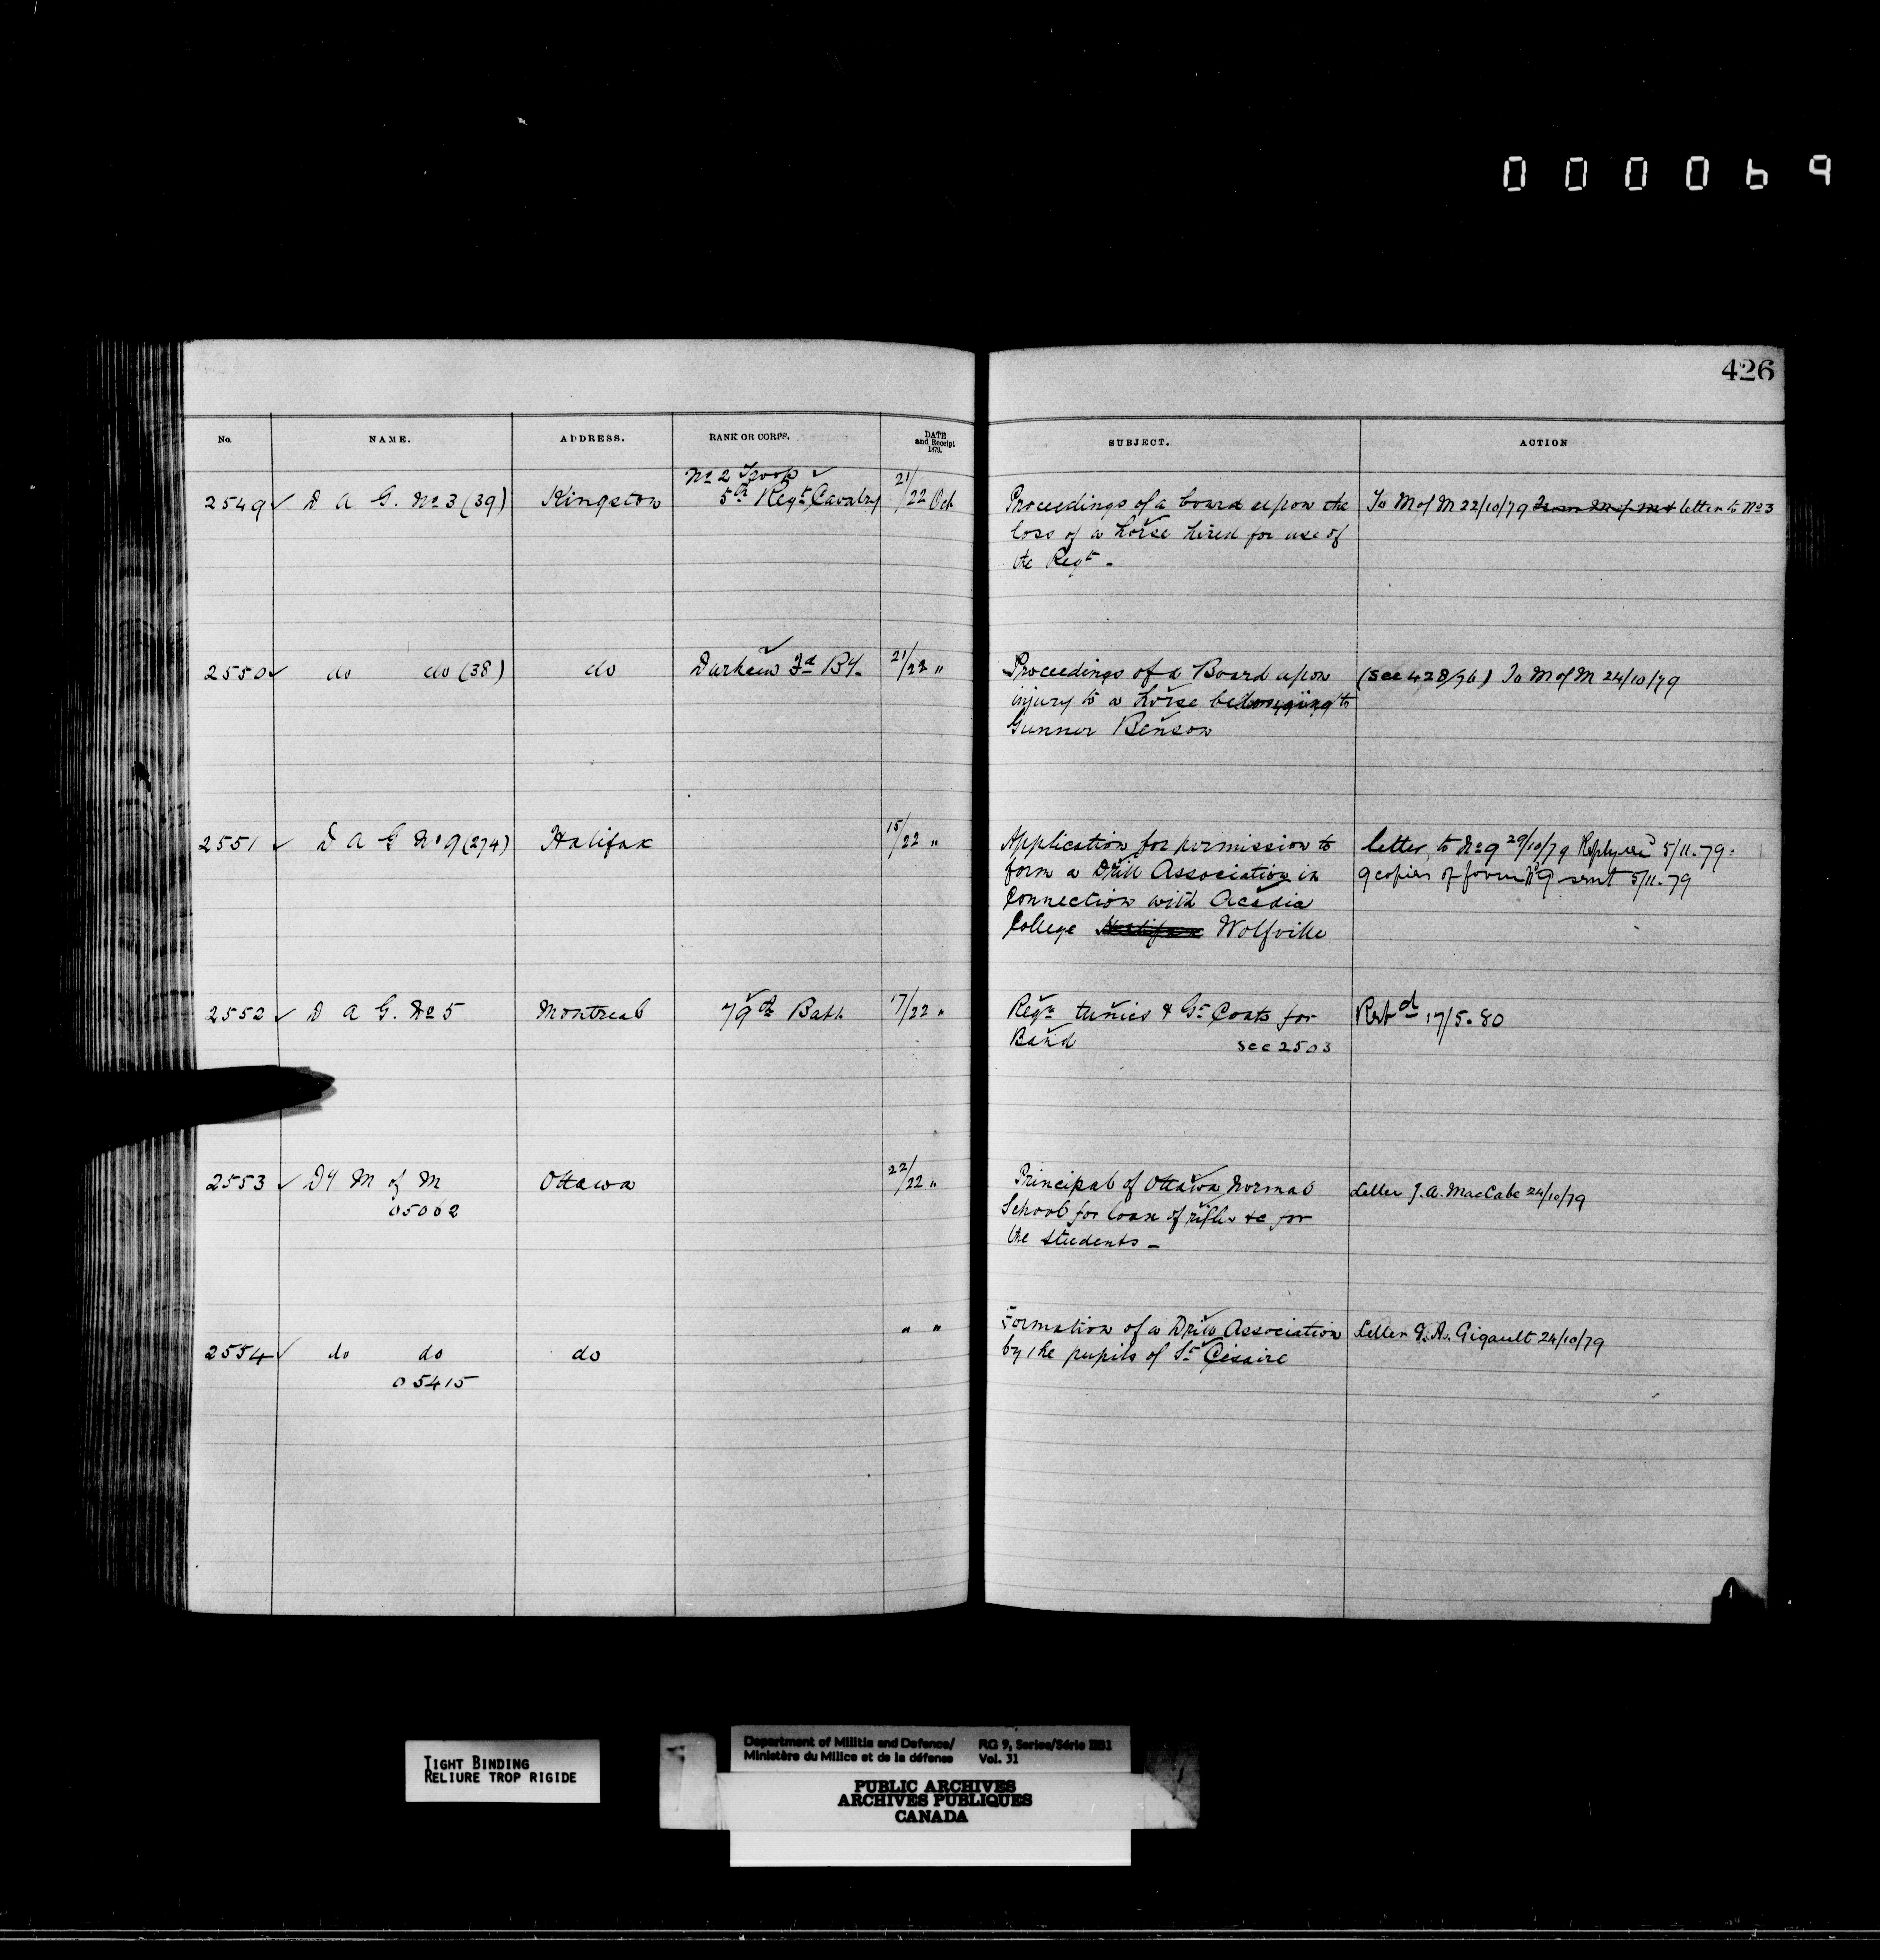 000069
426
No. NAME. ADDRESS. RANK OR CORPS. DATE and Receipt 1879. SUBJECT. ACTION
No 2 Troop
2549 ✓ D A G. No 3 (39) Kingston 5th Regt Cavalry 21/22 Oct Proceedings of a board upon the To M of M 22/10/79 letter to No 3
loss of a horse hired for use of
the Regt -
2550 ✓ do do (38) do Durham Fd By. 21/22 " Proceedings of a Board upon (See 428/96) To M of M 24/10/79
injury to a horse belonging to
Gunner Benson
2551 ✓ D A G No 9 (274) Halifax 15/22 " Application for permission to letter to No 9 29/10/79 Reply recd 5/11.79.
form a Drill Association in 9 copies of form No 9 sent 5/11.79
Connection with Acadia
College Halifax Wolfville
2552 ✓ D A G. No 5 Montreal 79th Batt. 17/22 " Reqn tunics & Gt Coats for Retd 17/5.80
Band see 2503
2553 ✓ Dy M of M Ottawa 22/22 " Principal of Ottawa Normal Letter J. A. MacCabe 24/10/79
05062 School for loan of rifles &c for
the students -
2554 ✓ do do do " " Formation of a Drill Association Letter G. A. Gigault 24/10/79
05415 by the pupils of St Césaire
TIGHT BINDING
RELIURE TROP RIGIDE
Department of Militia and Defence/ RG 9, Series/Série IIB1
Ministère du Milice et de la défense Vol. 31
PUBLIC ARCHIVES
ARCHIVES PUBLIQUES
CANADA